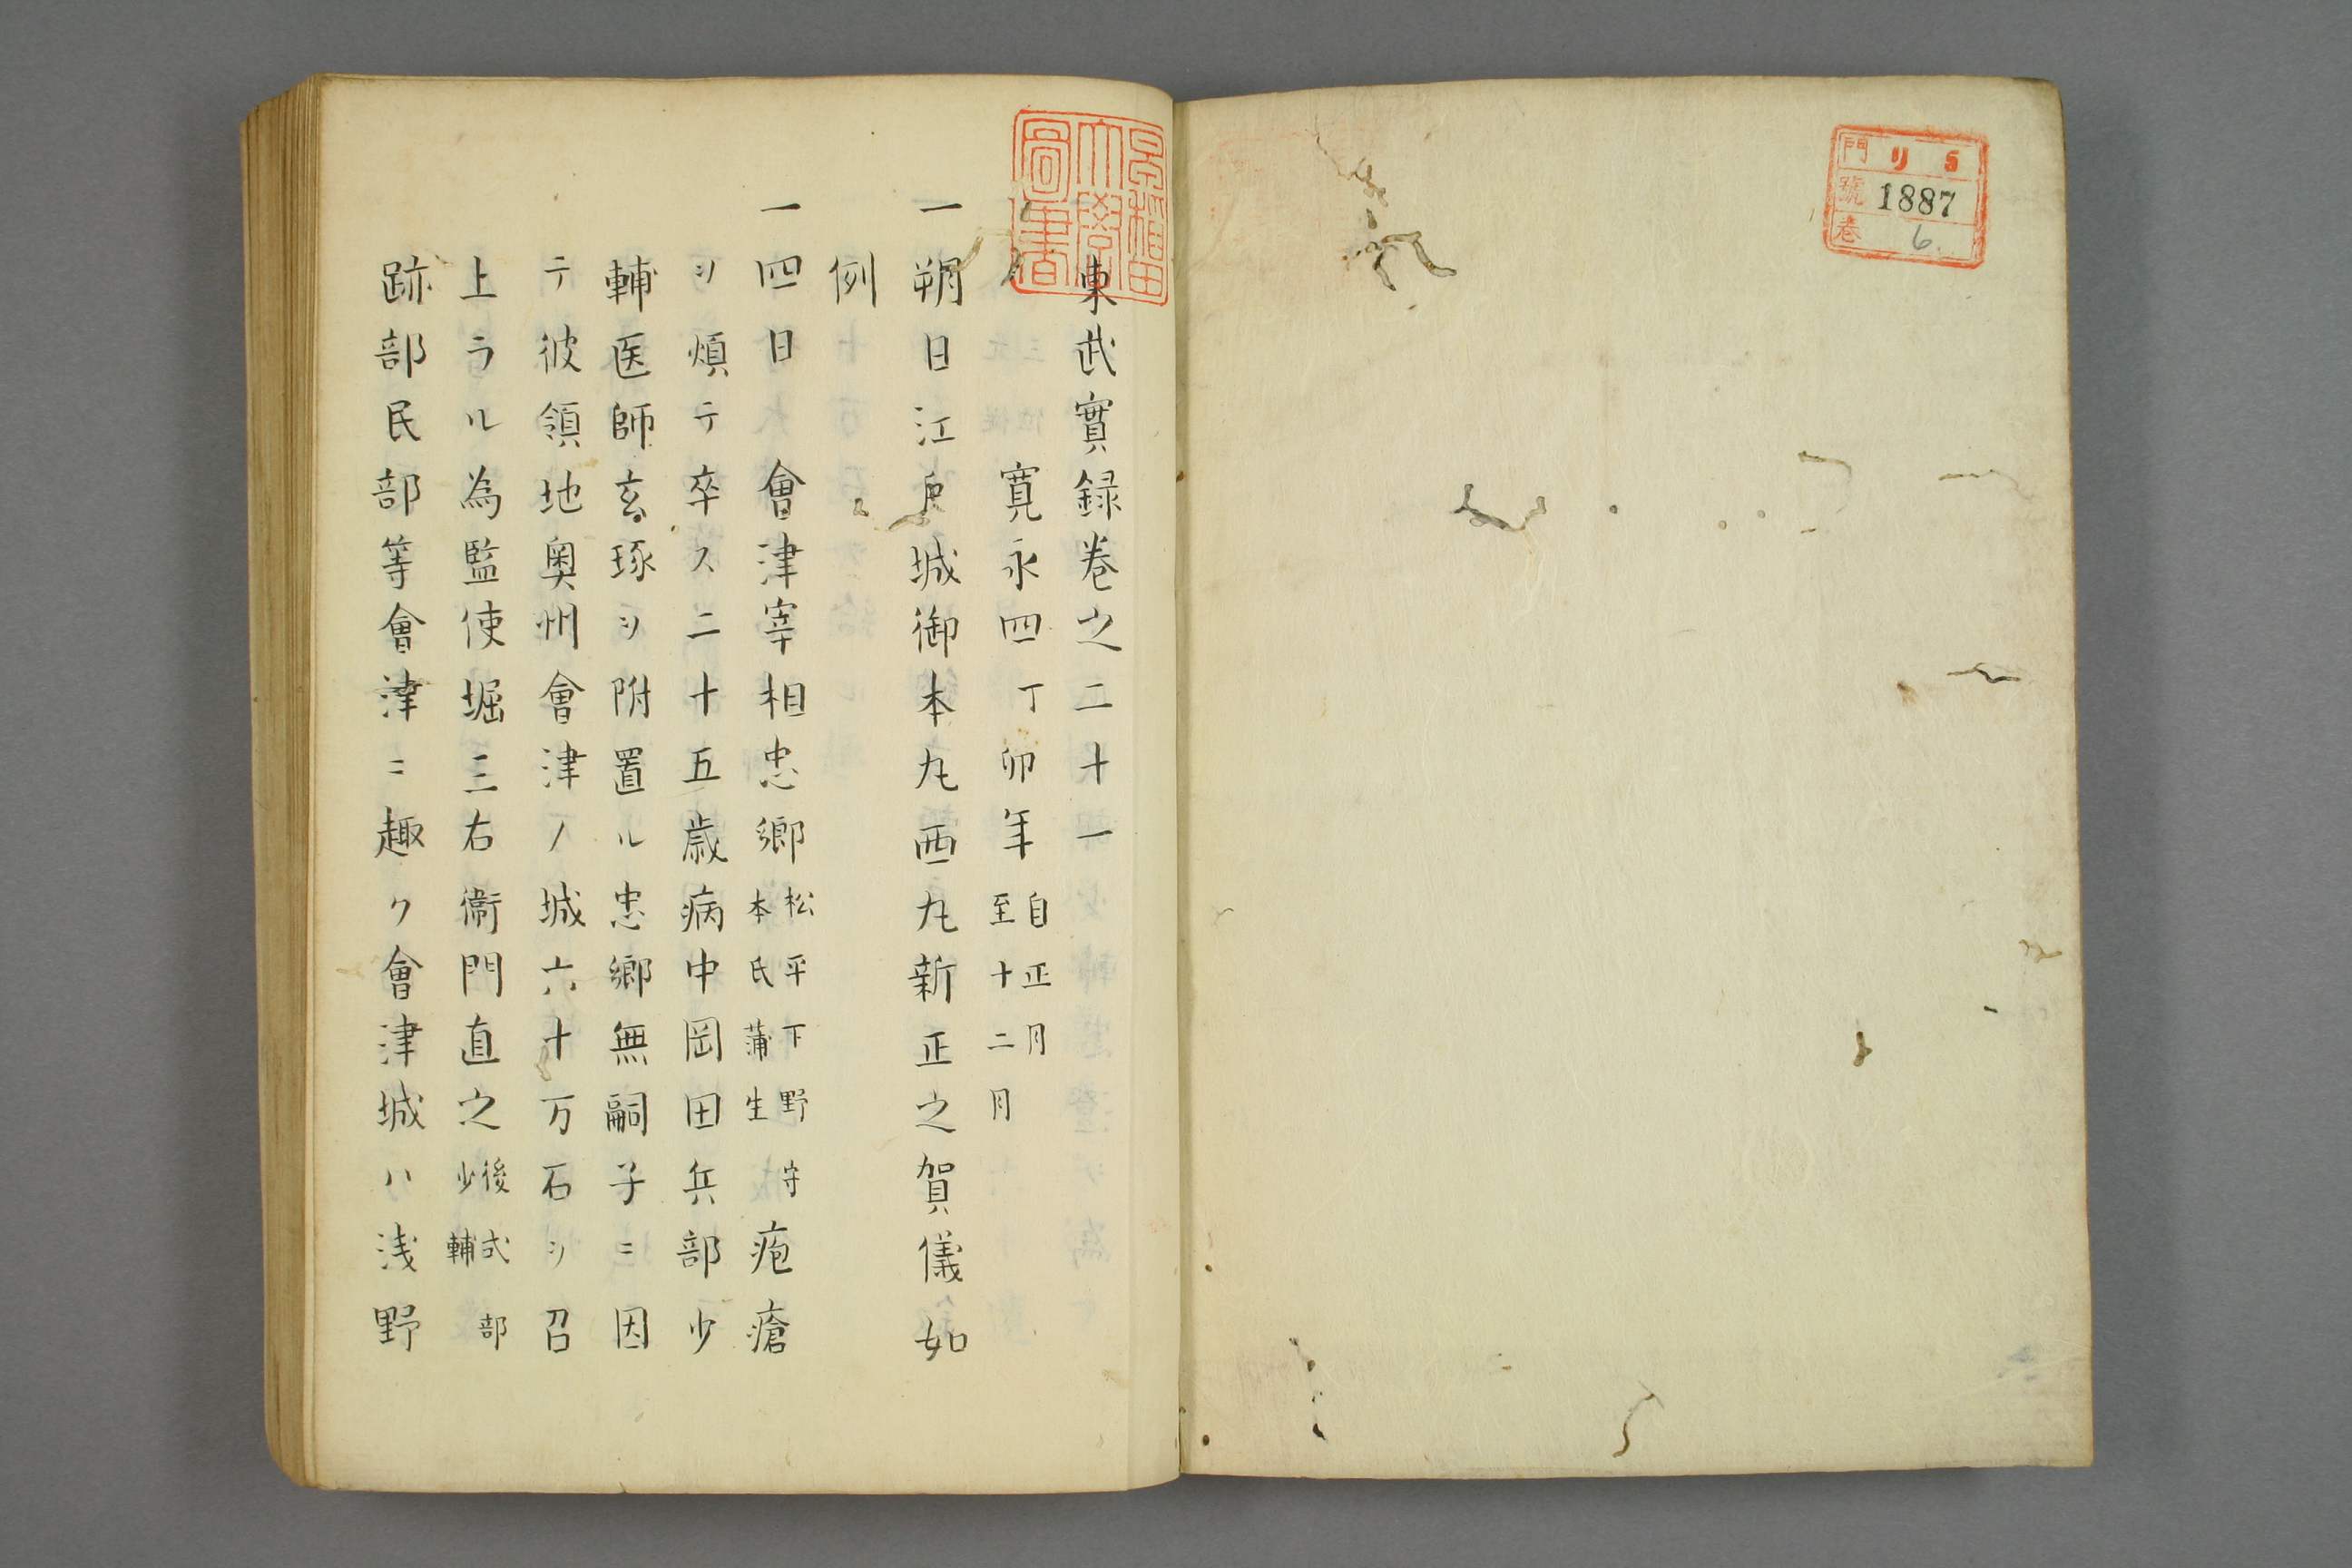 門 リ 5
號 1887
巻 6.
早稲田
大學
圖書
東武實録巻之二十一
寛永四丁卯年 自正月 至十二月
一朔日江戸城御本丸西丸新正之賀儀如
例
一四日 會津宰相忠郷 松平下野守 本氏蒲生 疱瘡
ヲ煩テ卒ス二十五歳病中岡田兵部少
輔医師玄琢ヲ附置ル忠郷無嗣子ニ因
テ彼領地奥州會津ノ城六十万石ヲ召
上ラル為監使堀三右衞門直之 後式部 少輔
跡部民部等會津ニ趣ク會津城ハ浅野